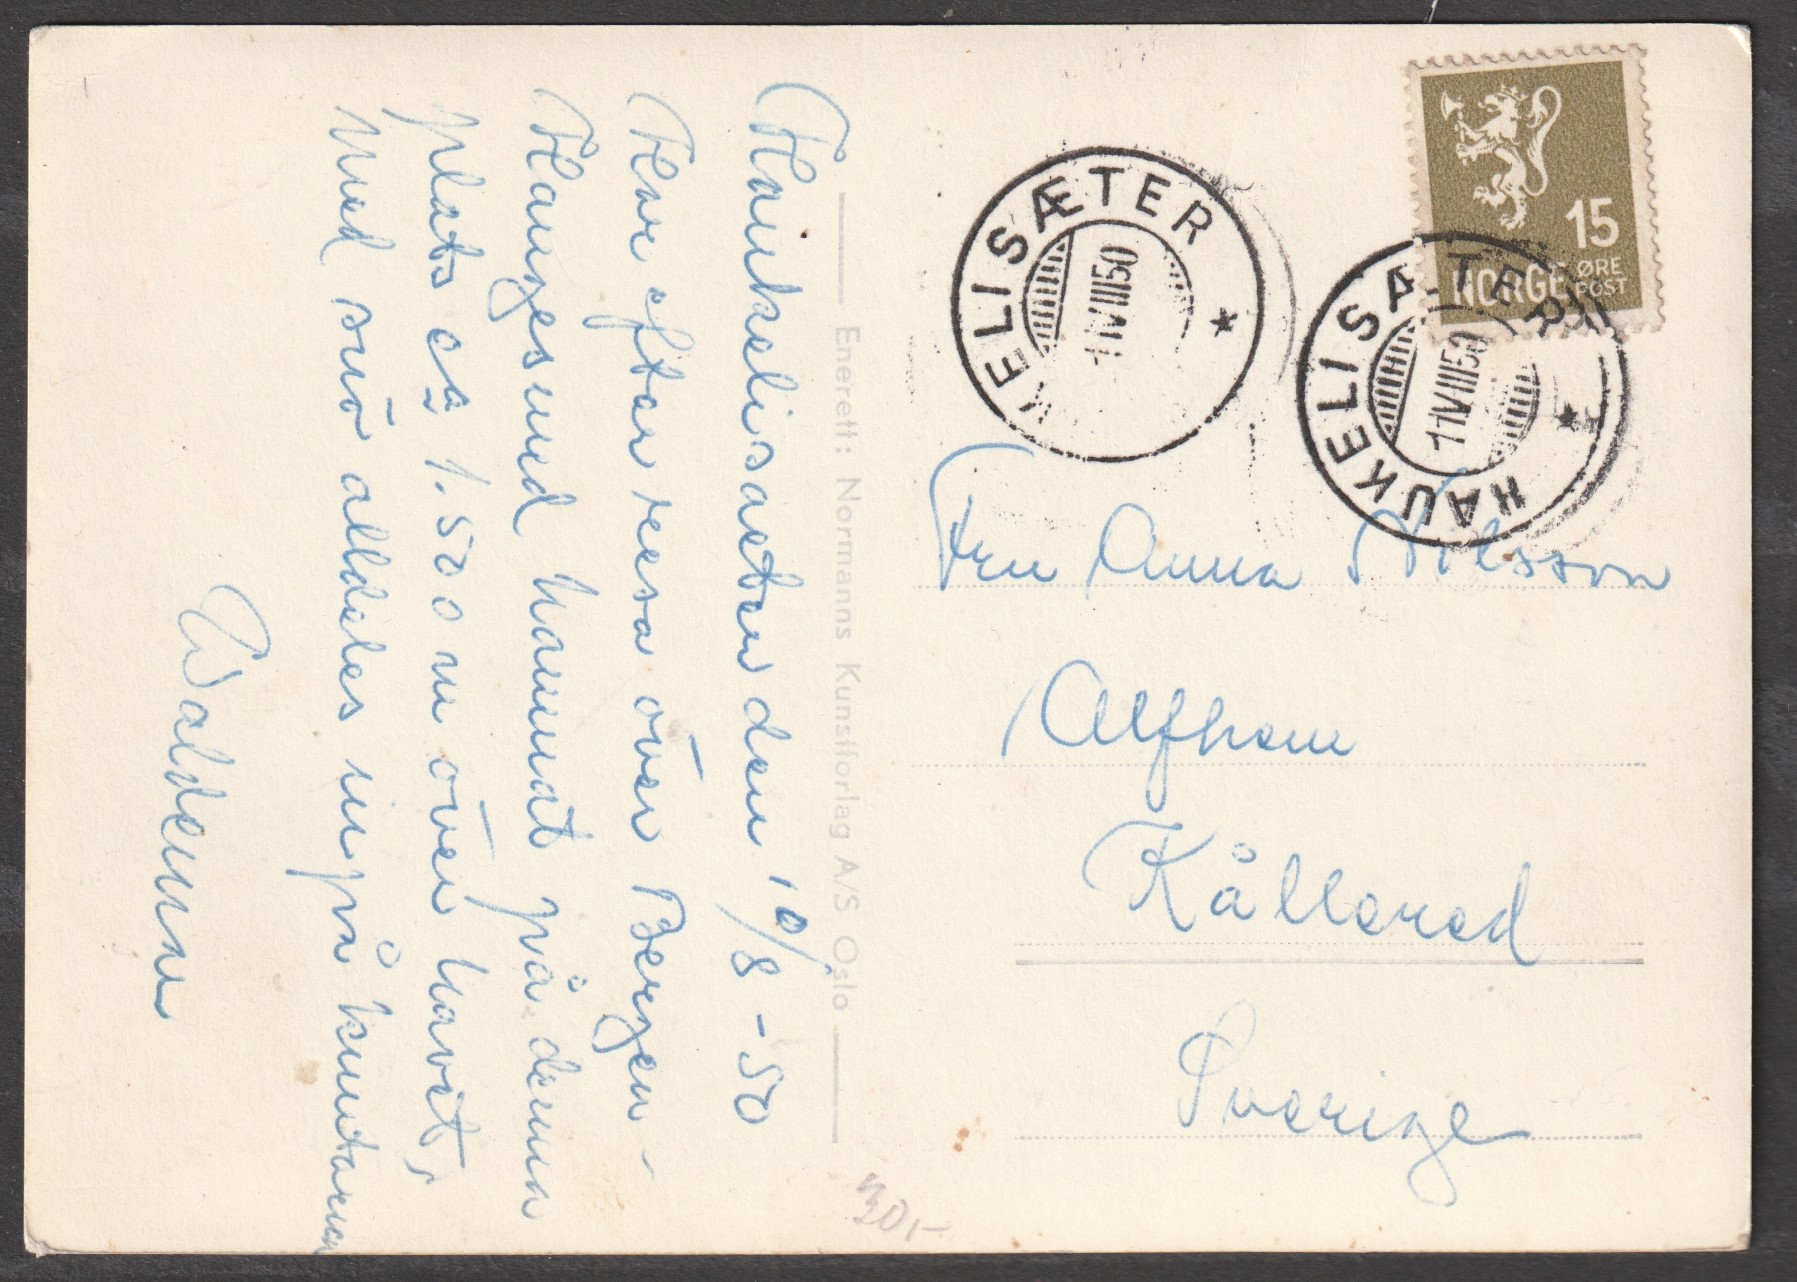 Haukelisaeter den 10/8 - 50
Har efter resa över Bergen -
Haugesund hamnat på denna
plats ca 1.500 m över havet,
med snö alldeles inpå knutarna
Waldemar
Enerett: Normanns Kunstforlag A/S Oslo
KELISÆTER
11 VIII 50
15
NORGE ØRE
POST
HAUKELISÆTER
11 VIII 50
Fru Anna Nilsson
Alfhem
Kållered
Sverige
30,-